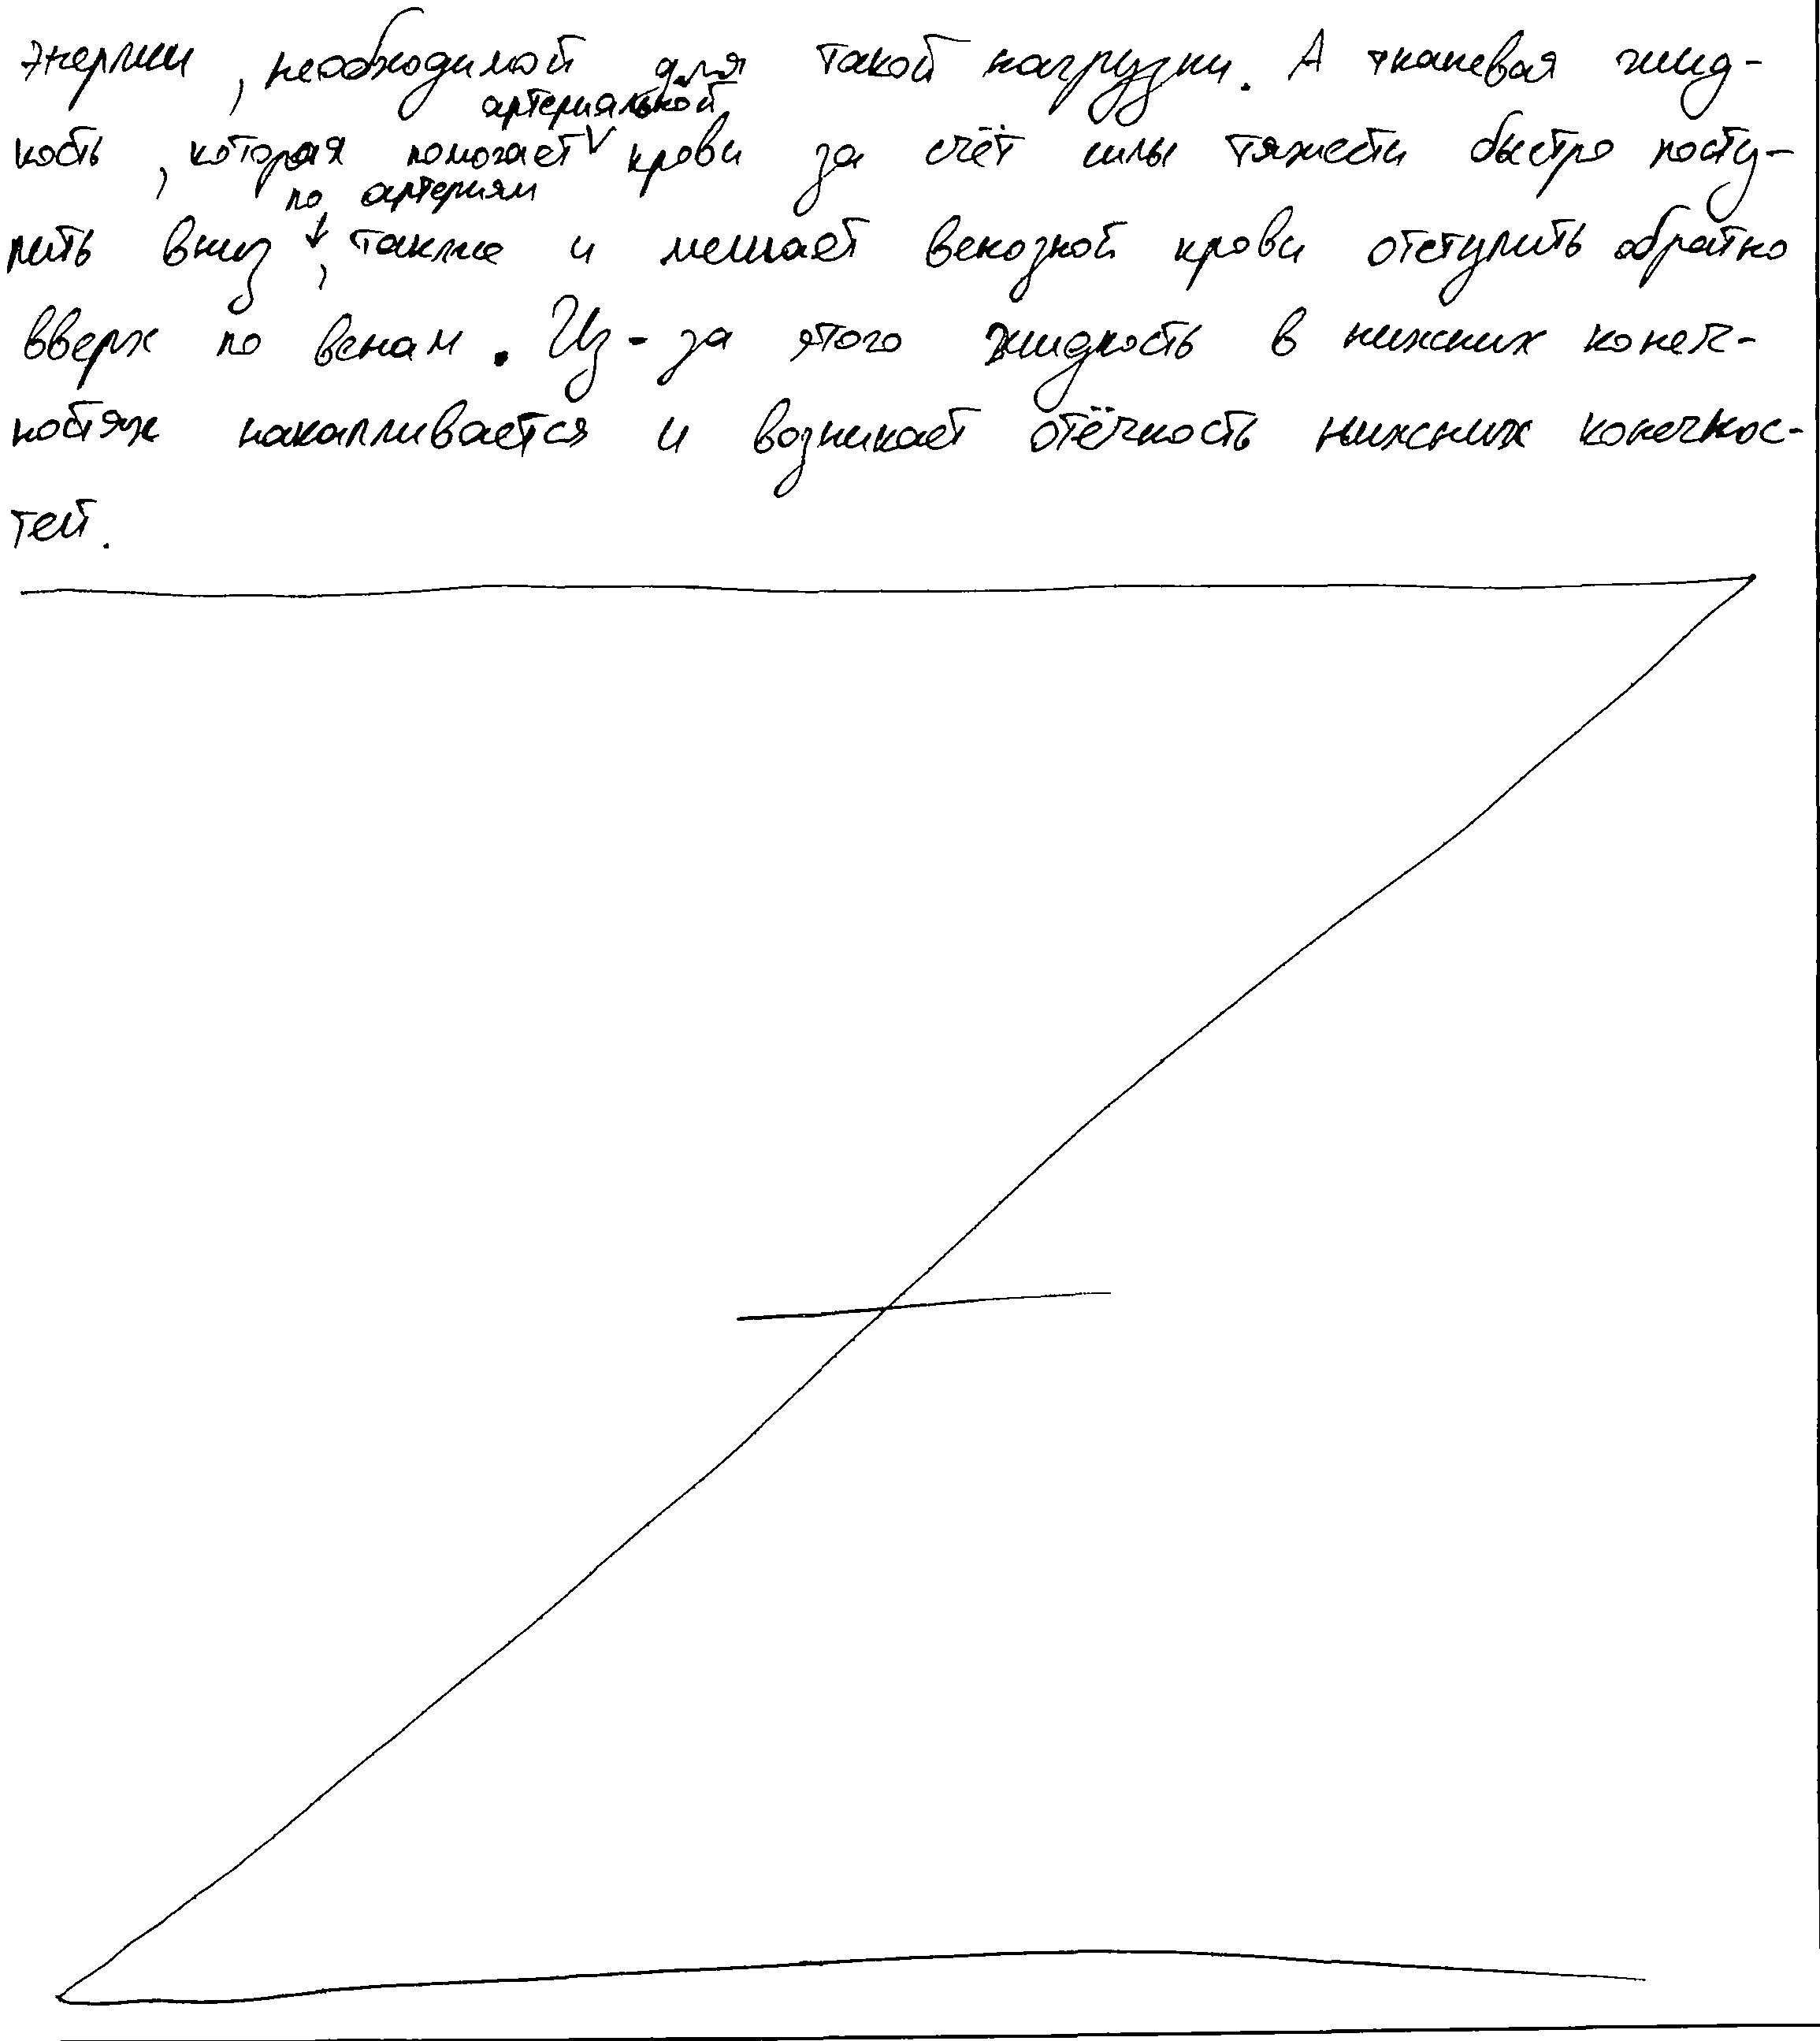 энергии, необходимой для такой нагрузки. А тканевая жид-
артериальной
кость, которая помогает крови за счёт силы тяжести быстро посту-
по артериям
пить вниз, также и мешает венозной крови отступить обратно
вверх по венам. Из-за этого жидкость в нижних конеч-
ностях накапливается и возникает отёчность нижних конечнос-
тей.